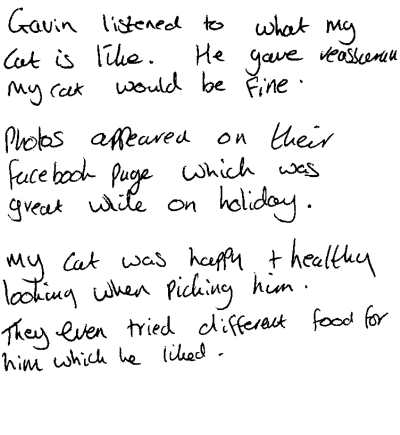 Gavin listened to what my
cat is like. He gave reassurance
my cat would be fine.
Photos appeared on their
facebook page which was
great while on holiday.
My cat was happy + healthy
looking when picking him.
They even tried different food for
him which he liked.